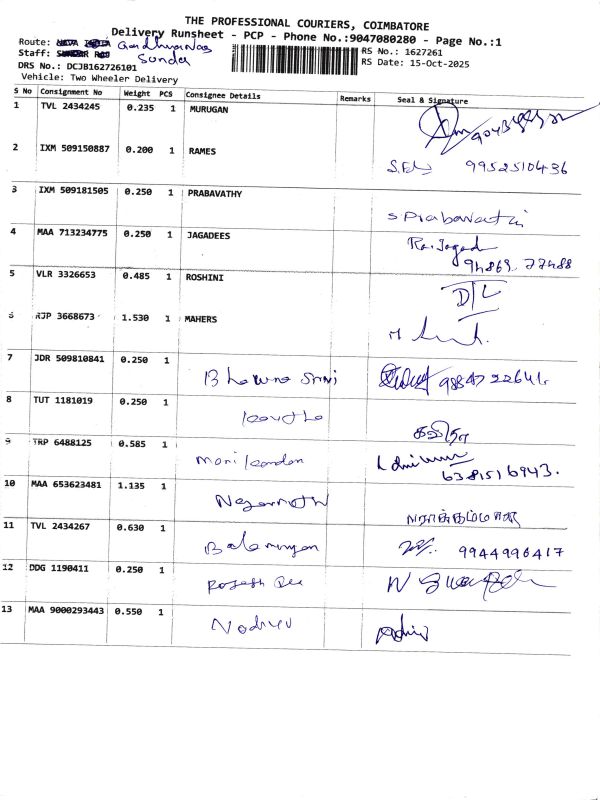 THE PROFESSIONAL COURIERS, COIMBATORE
Delivery Runsheet - PCP - Phone No.:9047080280 - Page No.:1
Route: Gandhi
Staff: Sunder
RS No.: 1627261
DRS No.: DCJB162726101
RS Date: 15-Oct-2025
Vehicle: Two Wheeler Delivery
S No Consignment No Weight PCS Consignee Details Remarks Seal & Signature
1 TVL 2434245 0.235 1 MURUGAN
2 IXM 509150887 0.200 1 RAMES 9952510436
3 IXM 509181505 0.250 1 PRABAVATHY S Prabavathi
4 MAA 713234775 0.250 1 JAGADEES Ra. Jagad
94869 77488
5 VLR 3326653 0.485 1 ROSHINI D/L
6 RJP 3668673 1.530 1 MAHERS
7 JDR 509810841 0.250 1 Bhawna Srini
8 TUT 1181019 0.250 1 Kavitha கவிதா
9 TRP 6488125 0.585 1 Manikandan
6381516943.
10 MAA 653623481 1.135 1
11 TVL 2434267 0.630 1 Balamurugan 9944996417
12 DDG 1190411 0.250 1
13 MAA 9000293443 0.550 1